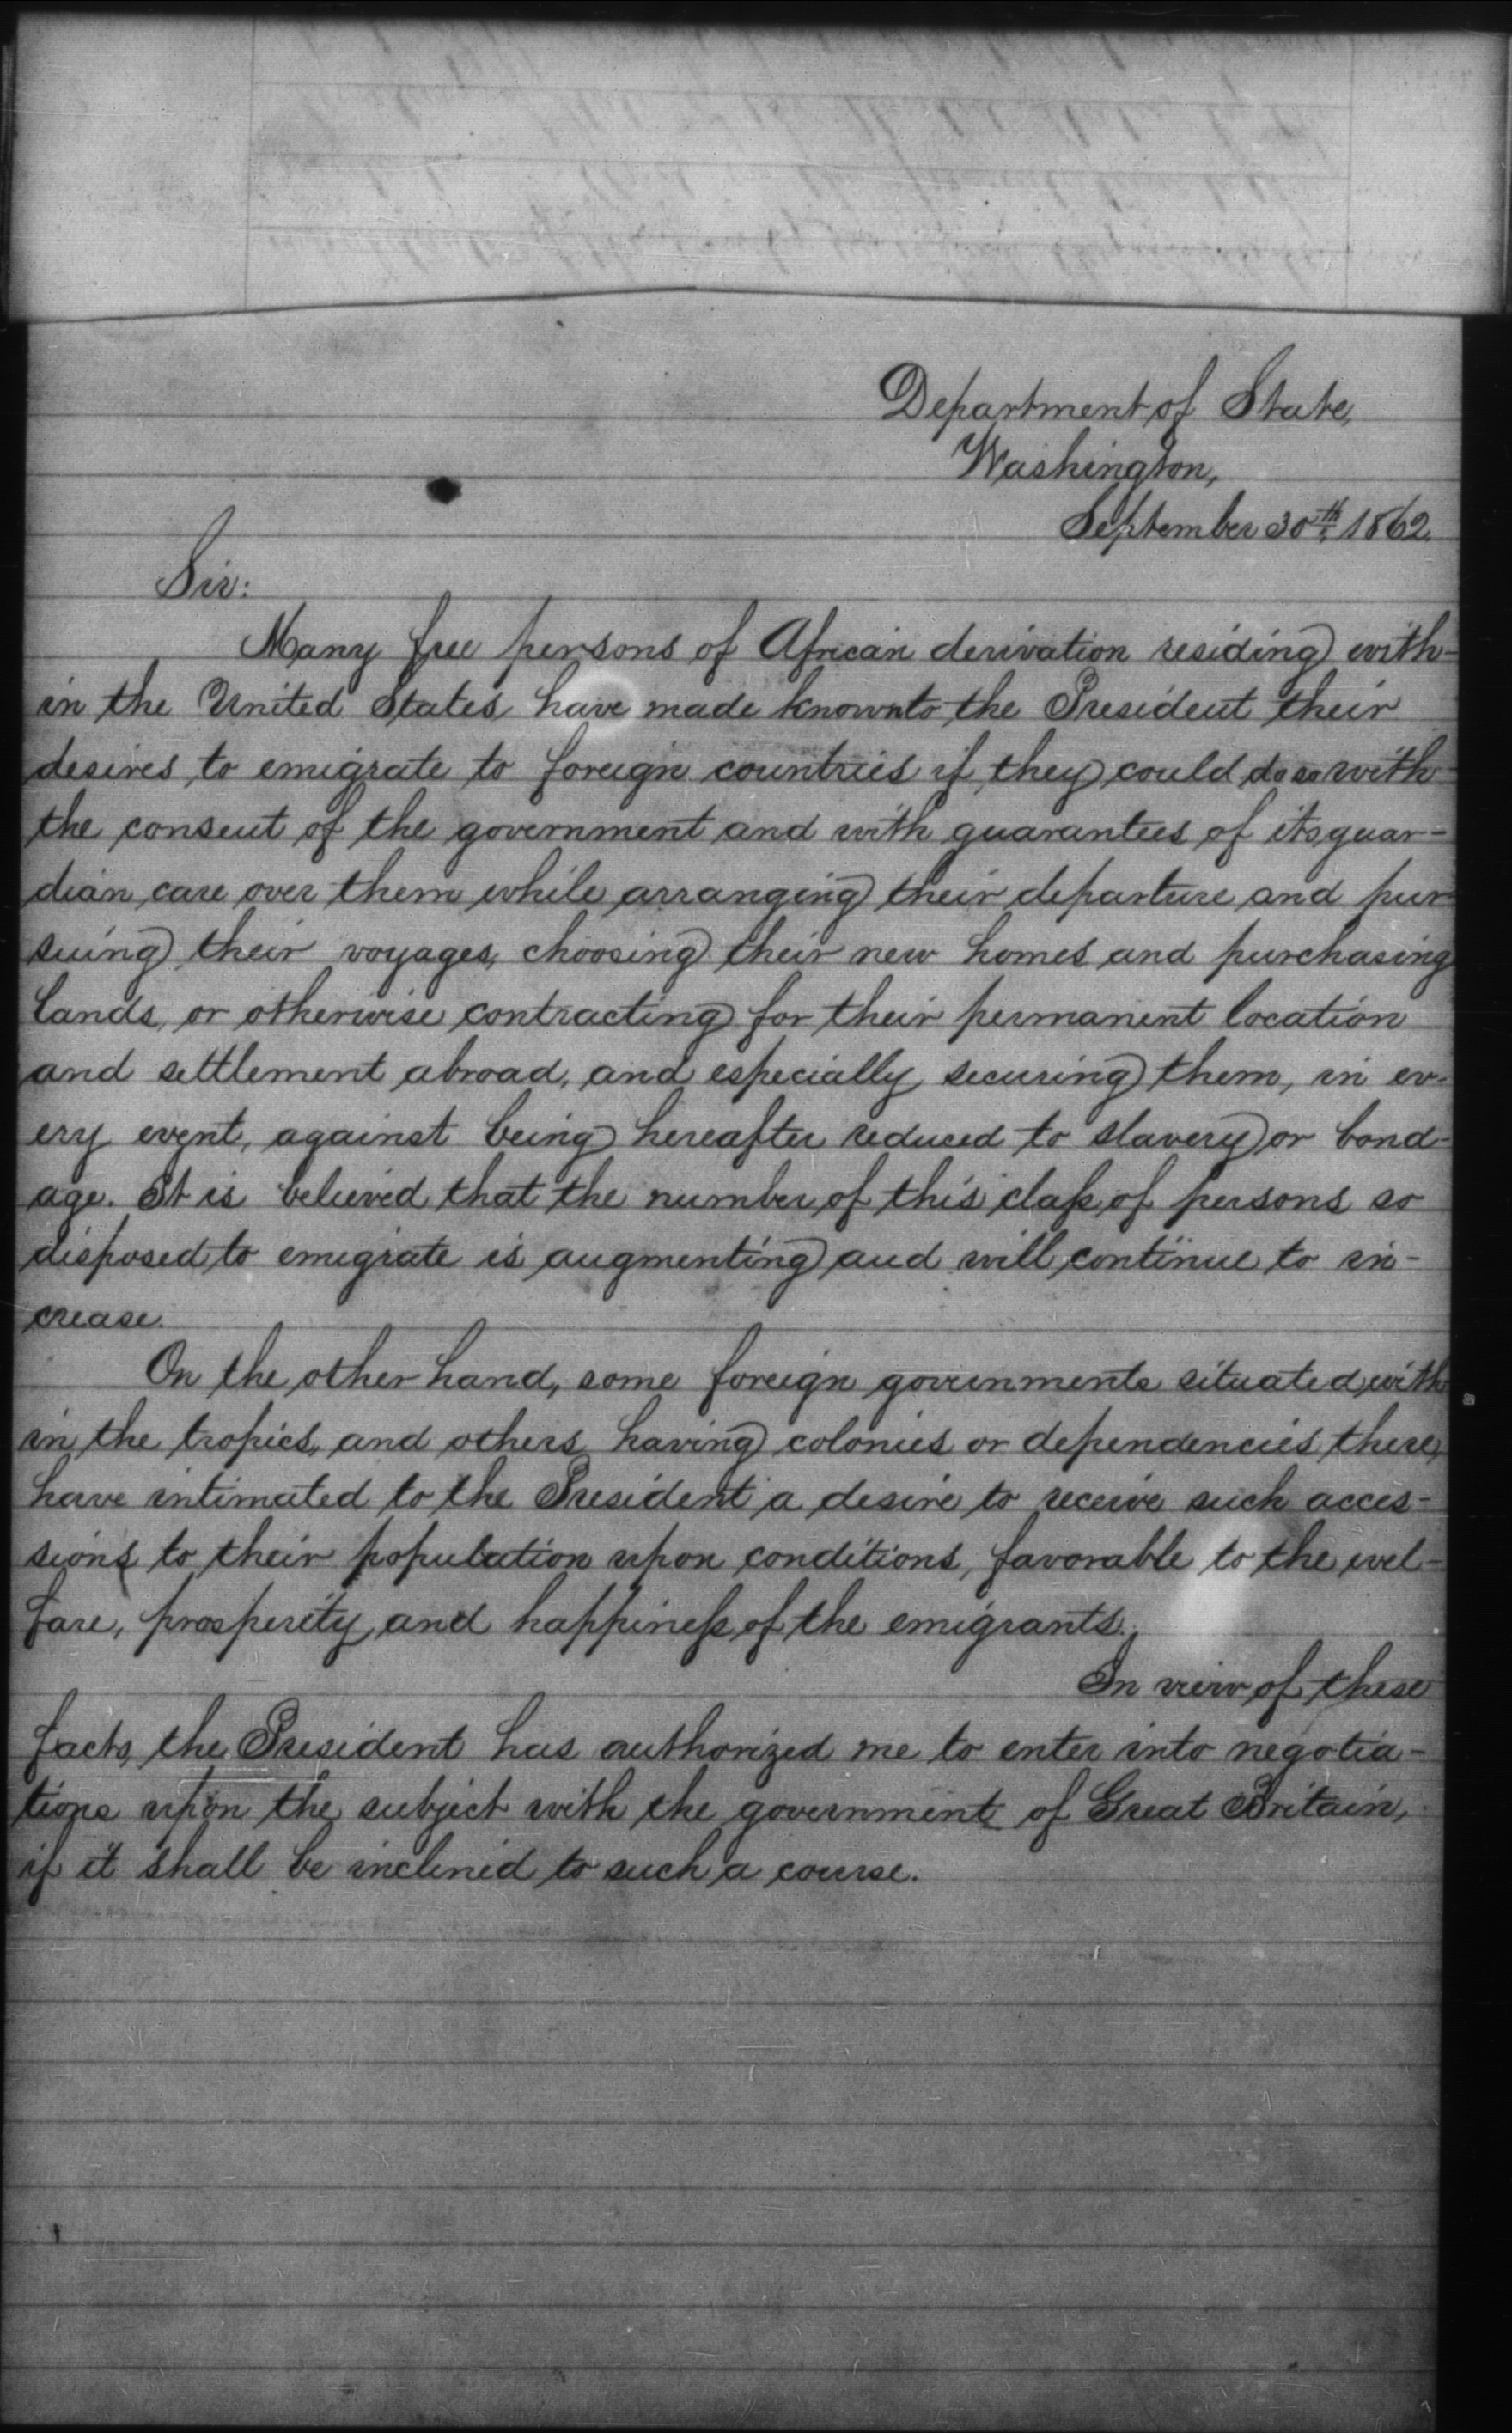 Department of State,
Washington,
September 30th, 1862.
Sir:
Many free persons of African derivation residing with-
in the United States have made known to the President their
desires to emigrate to foreign countries if they could do so with
the consent of the government and with guarantees of its guar-
dian care over them while arranging their departure and pur-
suing their voyages, choosing their new homes and purchasing
lands, or otherwise contracting for their permanent location
and settlement abroad, and especially securing them, in ev-
ery event, against being hereafter reduced to slavery or bond-
age. It is believed that the number of this class of persons so
disposed to emigrate is augmenting and will continue to in-
crease.
On the other hand, some foreign governments situated with
in the tropics, and others having colonies or dependencies there,
have intimated to the President a desire to receive such acces-
sions to their population upon conditions, favorable to the wel-
fare, prosperity and happiness of the emigrants.
In view of these
facts, the President has authorized me to enter into negotia-
tions upon the subject with the government of Great Britain,
if it shall be inclined to such a course.